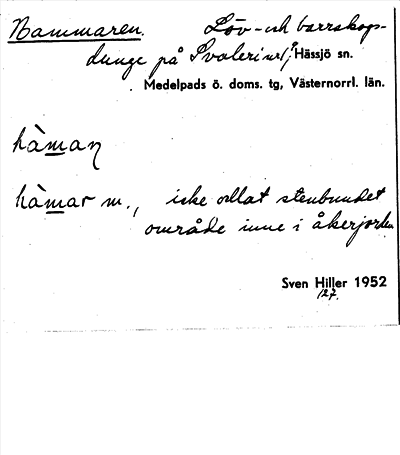 Hammaren. Löv- och barrskogs-
dunge på Hässjö sn.
Medelpads ö. doms. tg, Västernorrl. län.
hàman
hàmar m., icke odlat stenbundet
område inne i åkerjorden
Sven Hiller 1952
127.